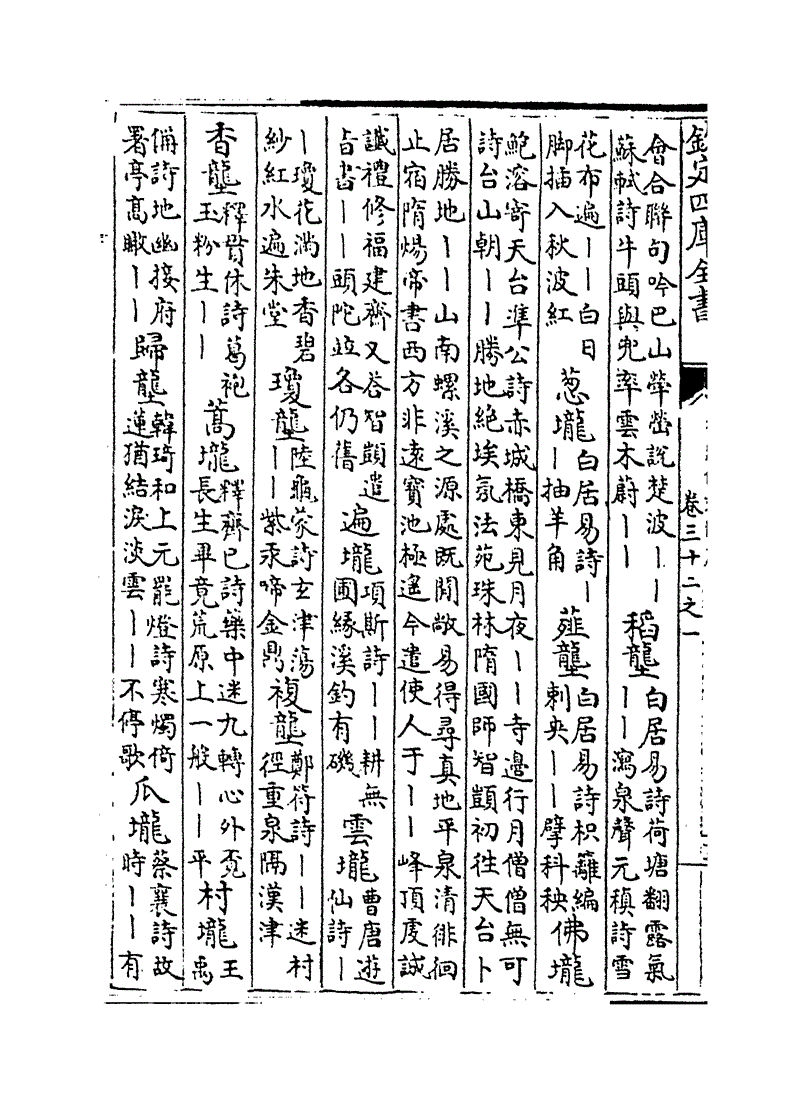 欽定四庫全書
卷三十二之一
會合聯句吟巴山犖嶨說楚波丨丨
蘇軾詩牛頭與兜率雲木蔚丨丨
稻壟
白居易詩荷塘翻露氣
丨丨瀉泉聲元稹詩雪
花布遍丨丨白日
脚插入秋波紅
葱壠
白居易詩丨
丨抽羊角
薤壟
白居易詩枳籬編
刺夾丨丨擘科秧
佛壠
鮑溶寄天台準公詩赤城橋東見月夜丨丨寺邊行月僧僧無可
詩台山朝丨丨勝地絶埃氛法苑珠林隋國師智顗初徃天台卜
居勝地丨丨山南螺溪之源處既閒敞易得尋真地平泉清徘徊
止宿隋煬帝書西方非遠寶池極遙今遣使人于丨丨峰頂虔誠
讖禮修福建齋又荅智顗遣
旨書丨丨頭陀並各仍舊
遍壠
項斯詩丨丨耕無
圃緣溪釣有磯
雲壠
曹唐遊
仙詩丨
丨瓊花滿地香碧
紗紅水遍朱堂
瓊壟
陸龜蒙詩玄津蕩
丨丨紫汞啼金鼎
複壟
鄭符詩丨丨迷村
徑重泉隔漢津
香壟
釋貫休詩葛袍
玉粉生丨丨
蒿壠
釋齊已詩藥中迷九轉心外覔
長生畢竟荒原上一般丨丨平
村壠
王
禹
偁詩地幽接府
署亭髙瞰丨丨
歸壟
韓琦和上元罷燈詩寒燭倚
蓮猶結淚淡雲丨丨不停歌
瓜壠
蔡襄詩故
時丨丨有